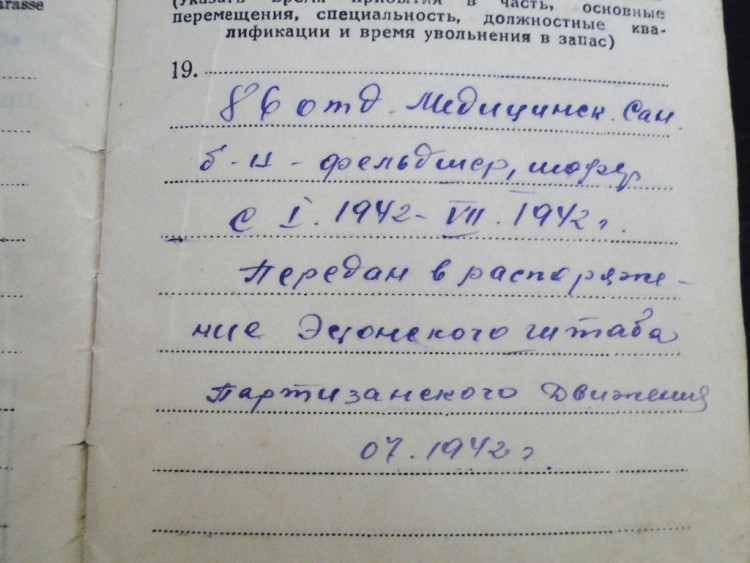 arasse
(Указать время прибытия в часть, основные
перемещения, специальность, должностные ква-
лификации и время увольнения в запас)
19.
86 отд. Медицинск. Сан.
б-н - фельдшер, шофер
с I. 1942 - VII. 1942 г.
Передан в распоряже-
ние Эстонского штаба
Партизанского Движения
07. 1942 г.